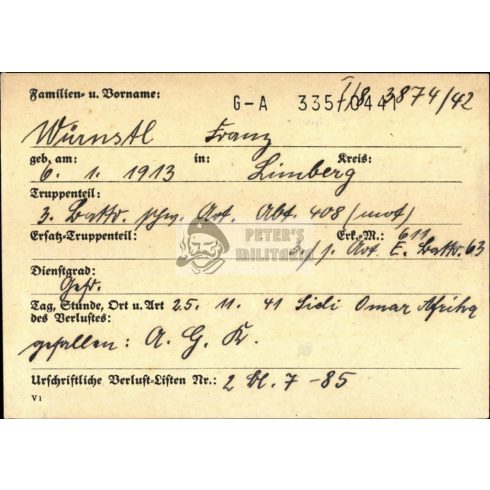 Familien- u. Vorname:
G-A 335/0441 I/8 3874/42
Würnstl Franz
geb. am: in: Kreis:
6. 1. 1913 Limberg
Truppenteil:
3. Battr. schw. Art. Abt. 408 (mot)
Ersatz-Truppenteil: Erk.-M.: 611
s. Art. E. Battr. 63
Dienstgrad:
Gefr.
Tag, Stunde, Ort u. Art 25. 11. 41 Sidi Omar Afrika
des Verlustes:
gefallen: A. G. K.
Urschriftliche Verlust-Listen Nr.: 2 Bl. 7 -85
V1
PETER'S
MILITARIA